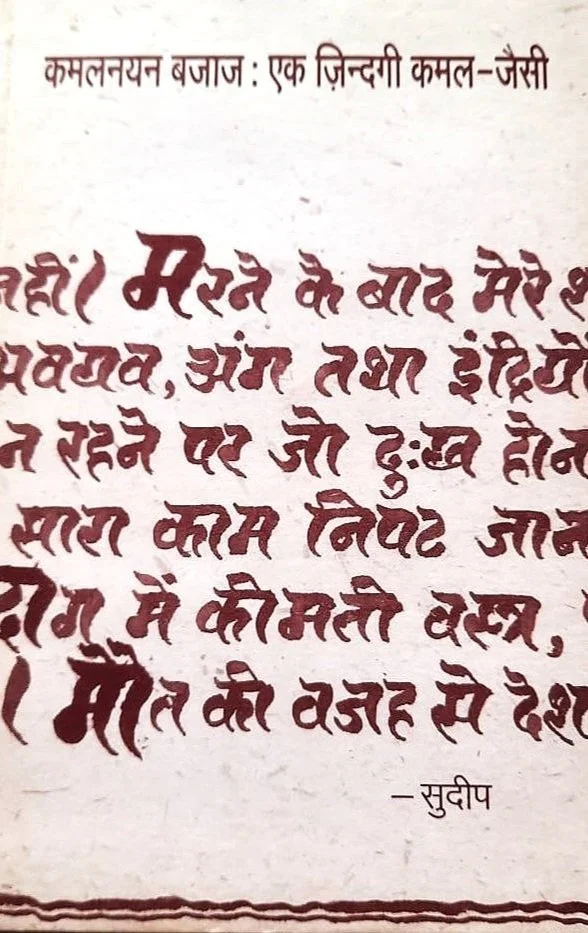 कमलनयन बजाज : एक ज़िन्दगी कमल-जैसी
नहीं। मरने के बाद मेरे
अवयव, अंग तथा इंद्रियों
न रहने पर जो दुःख होन
सारा काम निपट जान
में कीमती वस्त्र,
। मौत की वजह से देश
– सुदीप